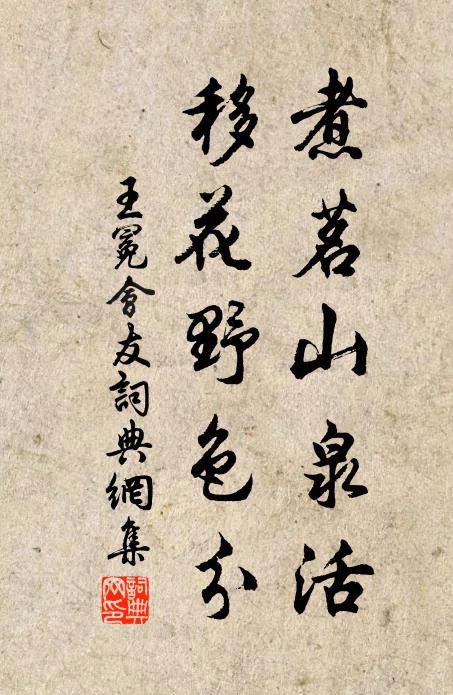 煮茗山泉活
移花野色分
王冕會友詞典網集
詞典網印